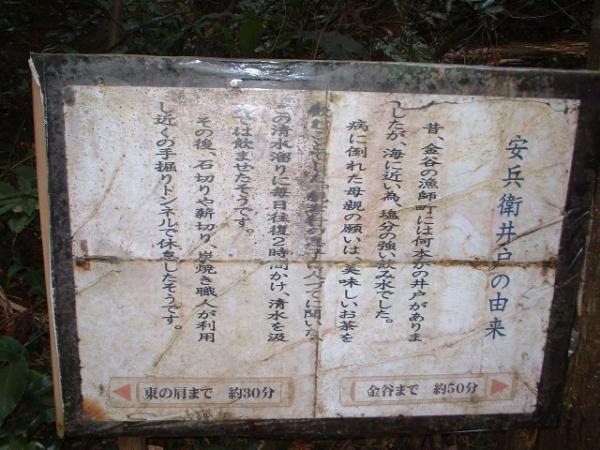 安兵衛井戸の由来
昔、金谷の漁師町には何本かの井戸がありま
したが、海に近い為、塩分の強い飲み水でした。
病に倒れた母親の願いは、美味しいお茶を
の息子は人づてに聞いた、
この清水溜りに毎日往復2時間かけ、清水を汲
では飲ませたそうです。
その後、石切りや薪切り、炭焼き職人が利用
し近くの手掘りトンネルで休息したそうです。
東の肩まで 約30分
金谷まで 約50分